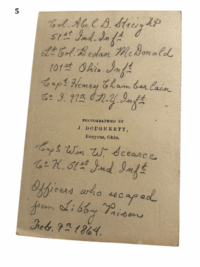 5
Col. Abel D. Streight
51st Ind. Inft
Lt Col. Bedan McDonald
101st Ohio Inft
Capt Henry Chamberlain
Co I. 97th N.Y. Inft
PHOTOGRAPHED BY
J. DOUGHERTY,
Bucyrus, Ohio.
Capt. Wm. W. Scearce
Co K. 51st Ind Inft
Officers who escaped
from Libby Prison
Feb. 9th 1864.